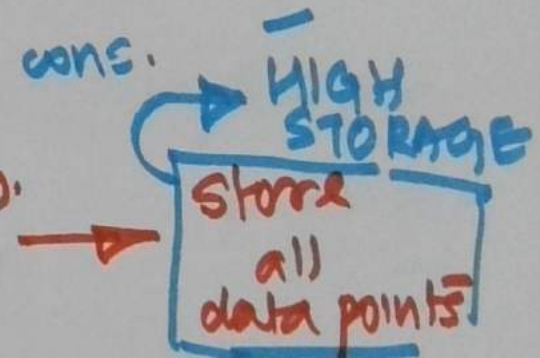 cons.
HIGH
STORAGE
store
all
data points